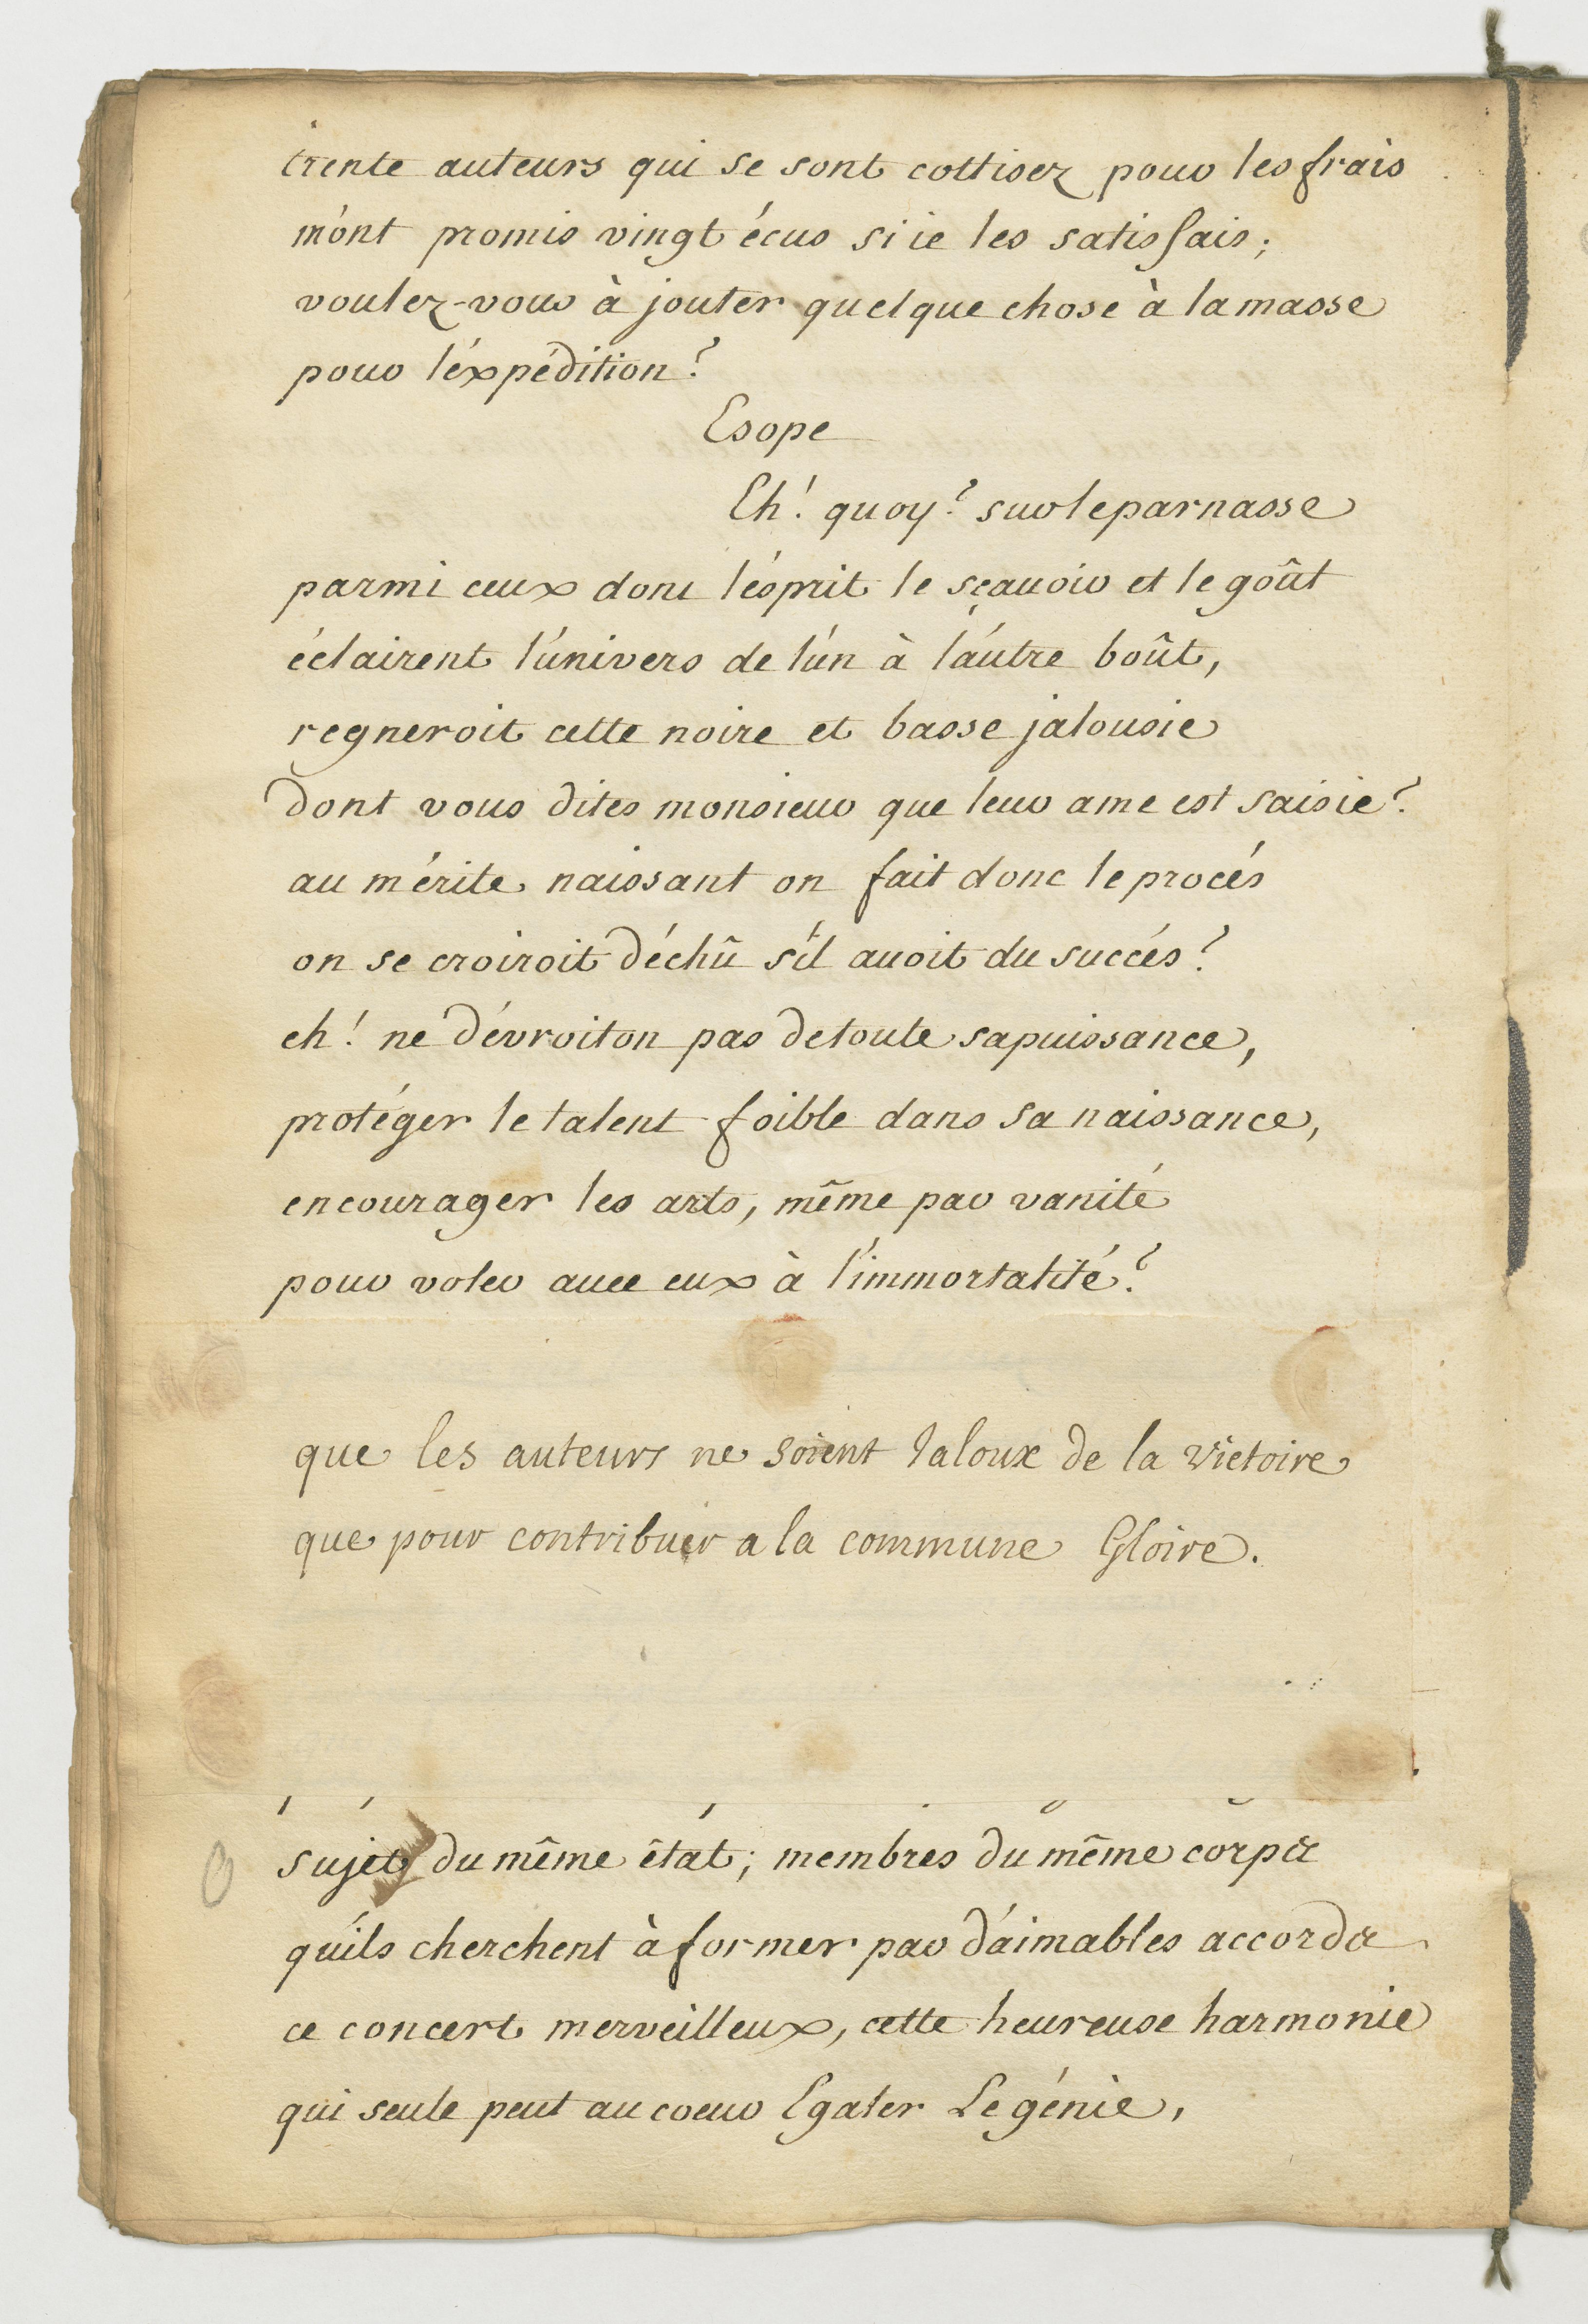 trente auteurs qui se sont cottisez pour les frais
m'ont promis vingt écus si ie les satisfais;
voulez-vous à jouter quelque chose à la masse
pour l'éxpédition?
Esope
Eh! quoy? sur le parnasse
parmi ceux dont l'ésprit le sçauoir et le goût
éclairent l'únivers de l'ún à l'áutre boût,
regneroit cette noire et basse jalousie
dont vous dites monsieur que leur ame est saisie?
au mérite naissant on fait donc le procés
on se croiroit déchû s'il auoit du succés?
eh! ne dévroit on pas de toute sa puissance,
protéger le talent foible dans sa naissance,
encourager les arts, même par vanité
pour voler auec eux à l'immortalité?
que les auteurs ne soient Jaloux de la victoire
que pour contribuer a la commune Gloire.
sujets du même êtat; membres du même corps
qu'ils cherchent à former par d'áimables accords
ce concert merveilleux, cette heureuse harmonie
qui seule peut au coeur Egaler Le génie,